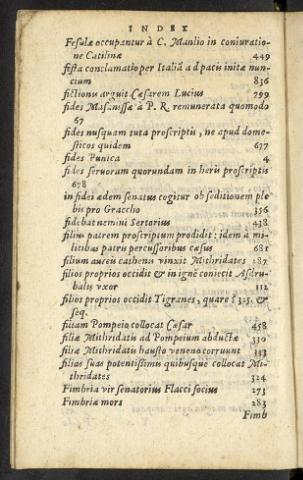 INDEX
Fesulæ occupantur à C. Manlio in coniuratio-
ne Catilinæ 449
festa conclamatio per Italiã ad pacis initæ nun-
cium 836
fictionis arguit Cæsarem Lucius 799
fides Masanissæ à P. R. remunerata quomodo
67
fides nusquam tuta proscriptis, ne apud dome-
sticos quidem 677
fides Punica 4
fides seruorum quorundam in heris proscriptis
678
in fidei ædem senatus cogitur ob seditionem ple
bis pro Graccho 356
fidebat nemini Sertorius 438
filius patrem proscriptum prodidit: idem à mi-
litibus patris percussoribus cæsus 681
filium aureis cathenis vinxit Mithridates 287
filios proprios occidit & in ignẽ coniecit Asdru-
balis vxor 112
filios proprios occidit Tigranes, quare? 325. &
seq.
filiam Pompeiæ collocat Cæsar 458
filiæ Mithridatis ad Pompeium abductæ 330
filiæ Mithridatis hausto veneno corruunt 333
filias suas potentissimis quibusque collocat Mi-
thridates 324
Fimbria vir senatorius Flacci socius 273
Fimbriæ mors 283
Fimb